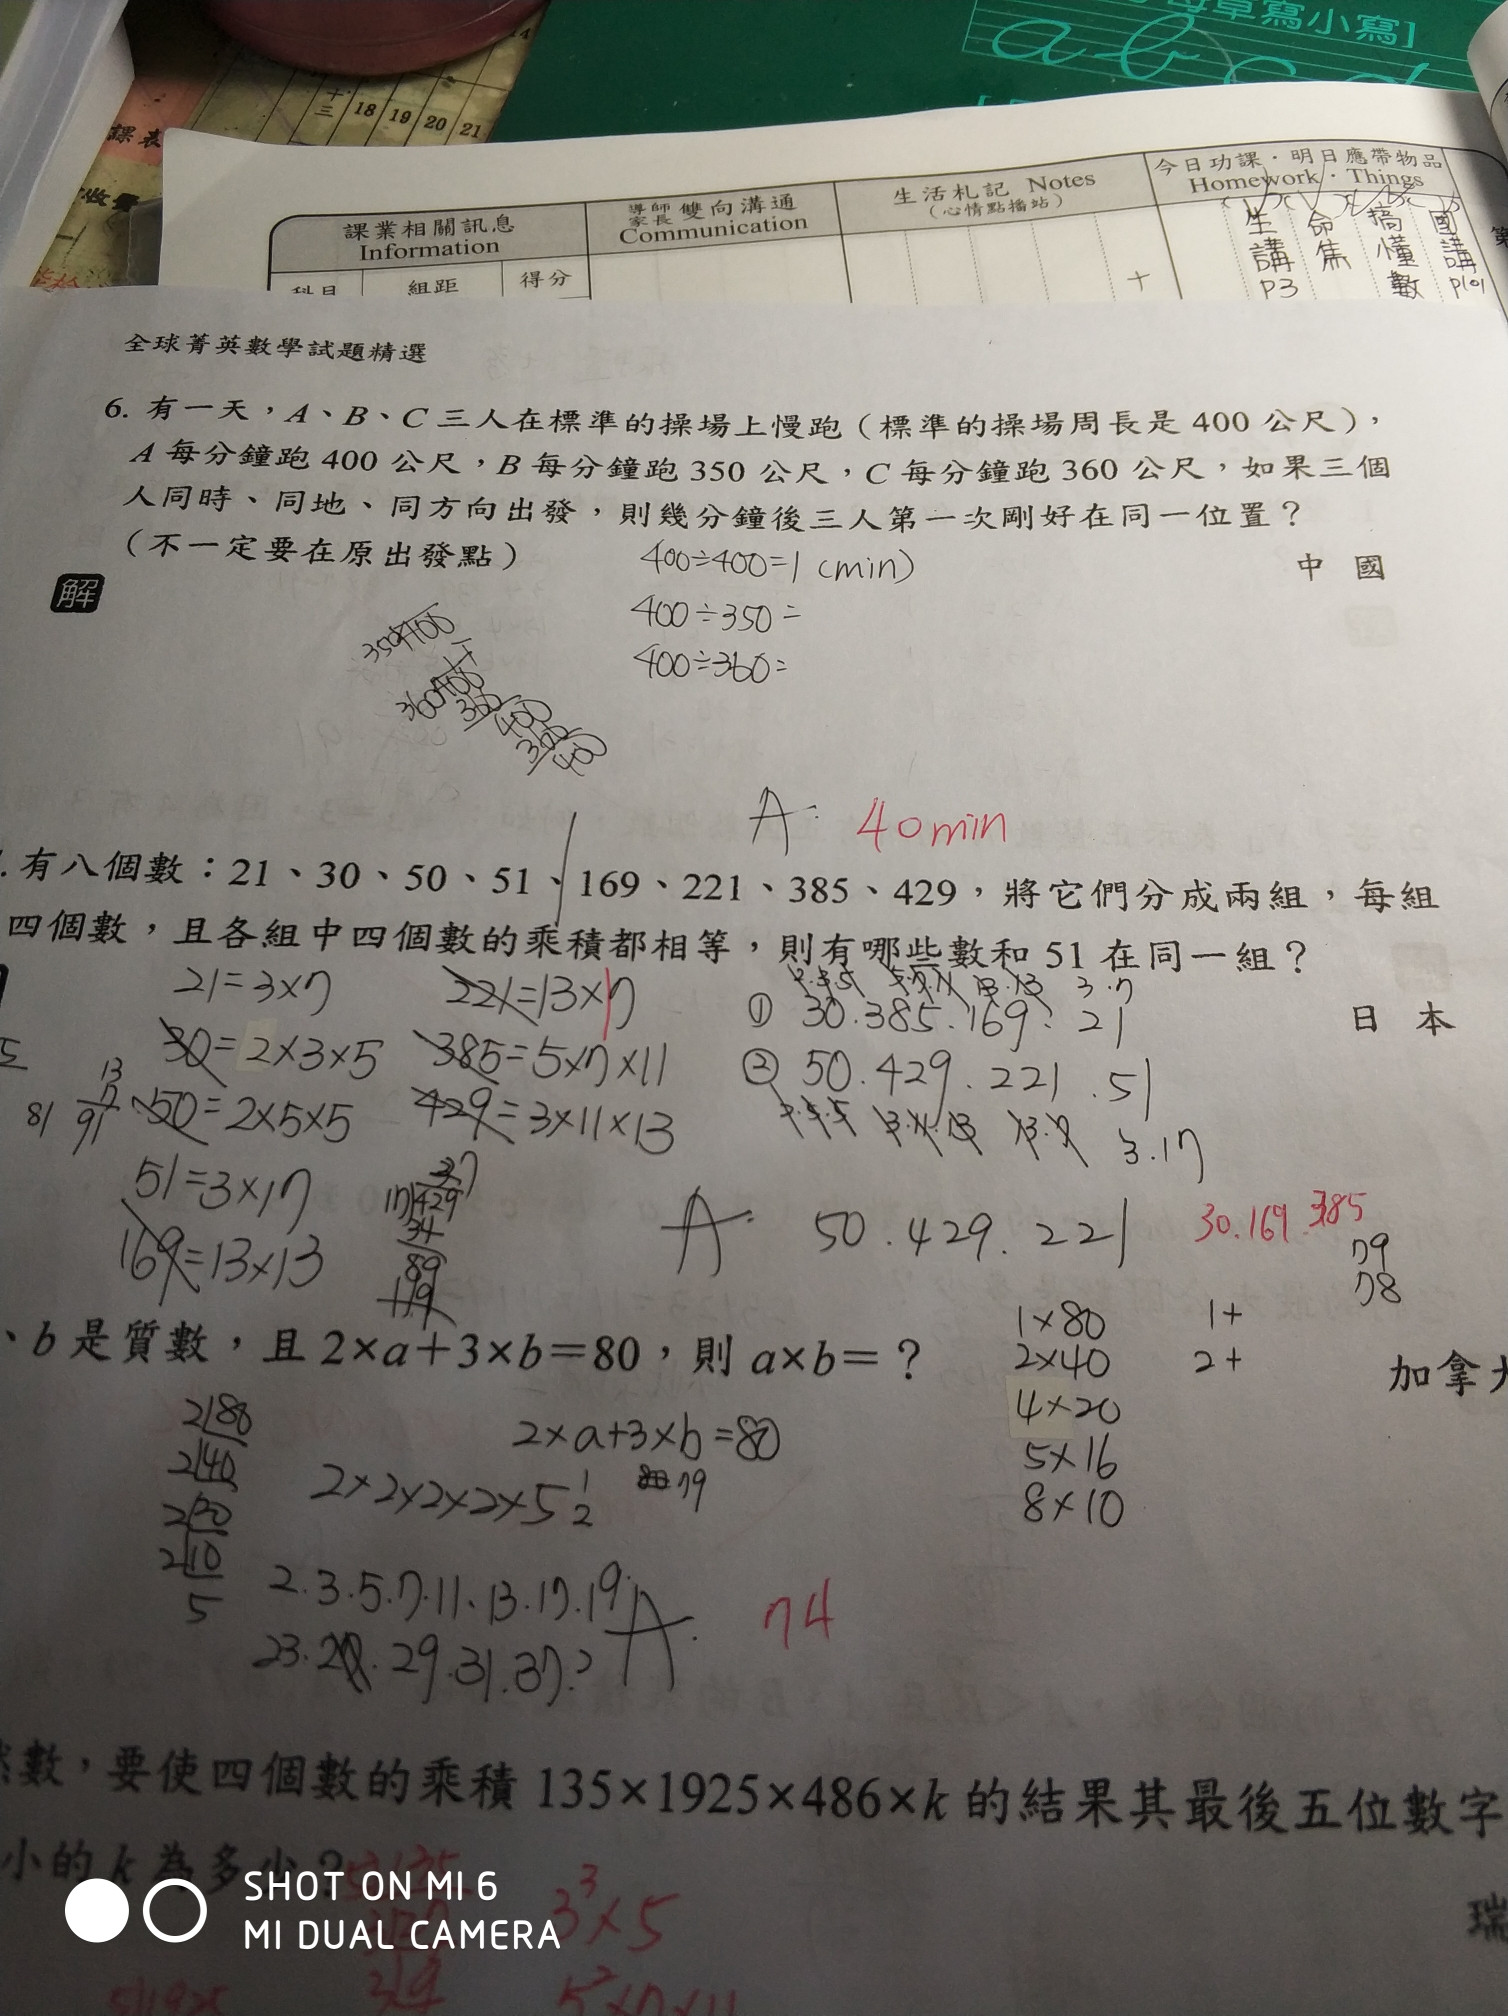 母草寫小寫]
a b c d
14
十三 18 19 20 21
課表
收費
課業相關訊息
Information
導師 家長 雙向溝通
Communication
生活札記 Notes
(心情點播站)
今日功課·明日應帶物品
Homework·Things
科目 組距 得分
生講P3
命集
搞懂數
國講p101
全球菁英數學試題精選
6. 有一天,A、B、C 三人在標準的操場上慢跑(標準的操場周長是 400 公尺),
A 每分鐘跑 400 公尺,B 每分鐘跑 350 公尺,C 每分鐘跑 360 公尺,如果三個
人同時、同地、同方向出發,則幾分鐘後三人第一次剛好在同一位置?
(不一定要在原出發點)
中 國
解
400÷400=1 (min)
400÷350=
400÷360=
A: 40min
.有八個數:21、30、50、51、169、221、385、429,將它們分成兩組,每組
四個數,且各組中四個數的乘積都相等,則有哪些數和 51 在同一組?
日 本
21=3×7
221=13×7
① 30.385.169.21
30=2×3×5
385=5×7×11
② 50.429.221.51
50=2×5×5
429=3×11×13
3.17
51=3×17
169=13×13
A: 50.429.221
30.169.385
79
78
、b 是質數,且 2×a+3×b=80,則 a×b=?
加拿大
1×80 1+
2×40 2+
4×20
5×16
8×10
2×a+3×b=80
79
2×2×2×2×5
2|80
2|40
2|20
2|10
5
2.3.5.7.11.13.17.19.
23. 29.31.37.
A: 74
然數,要使四個數的乘積 135×1925×486×k 的結果其最後五位數字
小的 k 為多少?
瑞
3³×5
5²×7×11
SHOT ON MI 6
MI DUAL CAMERA